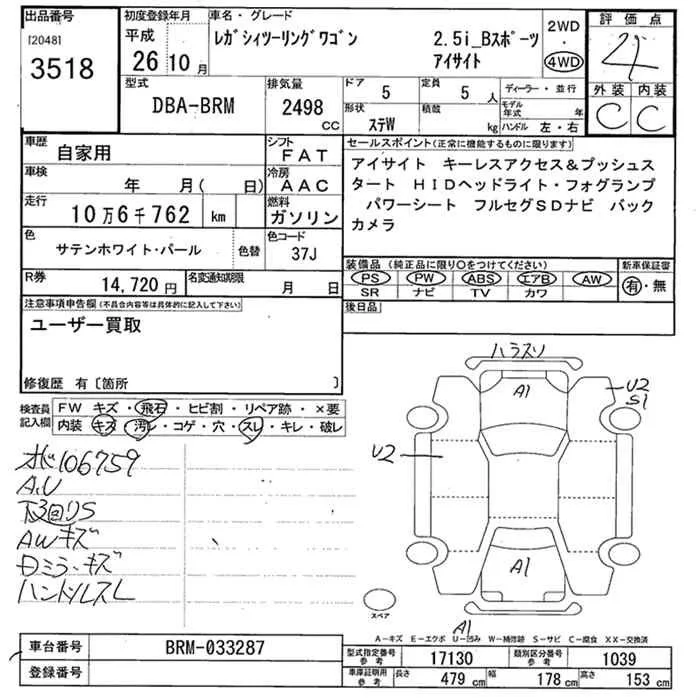 出品番号 [2048] 3518
初度登録年月 平成 26年10月
車名・グレード
レガシィツーリングワゴン 2.5i_Bスポーツ
アイサイト
2WD・4WD
評価点 4
外装 内装
C C
型式 DBA-BRM
排気量 2498 CC
ドア 5
定員 5 人
形状 ステW
積載 kg
ディーラー・並行
モデル年式 年
ハンドル 左・右
車歴 自家用
シフト FAT
車検 年 月( 日)
冷房 AAC
走行 10万6千762 km
燃料 ガソリン
色 サテンホワイト・パール 色替
色コード 37J
R券 14,720円
名変通知期限 月 日
セールスポイント(正常に機能するものに限ります)
アイサイト キーレスアクセス&プッシュス
タート HIDヘッドライト・フォグランプ
パワーシート フルセグSDナビ バック
カメラ
装備品(純正品に限り○をつけてください) 新車保証書
PS PW ABS エアB AW 有・無
SR ナビ TV カワ
後日品
注意事項申告欄(不具合内容等は具体的に記入して下さい)
ユーザー買取
修復歴 有〔箇所 〕
検査員記入欄
FW キズ・飛石・ヒビ割・リペア跡・×要
内装 キズ・汚レ・コゲ・穴・スレ・キレ・破レ
106759
A,U
下回りS
AWキズ
Dミラーキズ
ハンドルスレ
ハラスリ
A1
U2
S1
U2
A1
A1
スペア
A-キズ E-エクボ U-凹み W-補修跡 S-サビ C-腐食 XX-交換済
車台番号 BRM-033287
登録番号
型式指定番号 参考 17130
類別区分番号 参考 1039
車庫証明用 参考 長さ 479 cm 幅 178 cm 高さ 153 cm